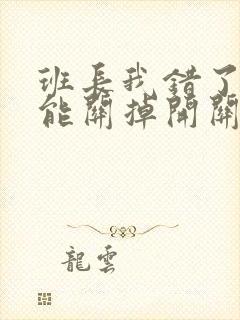 班长我错了
能關掉開關
龍雲